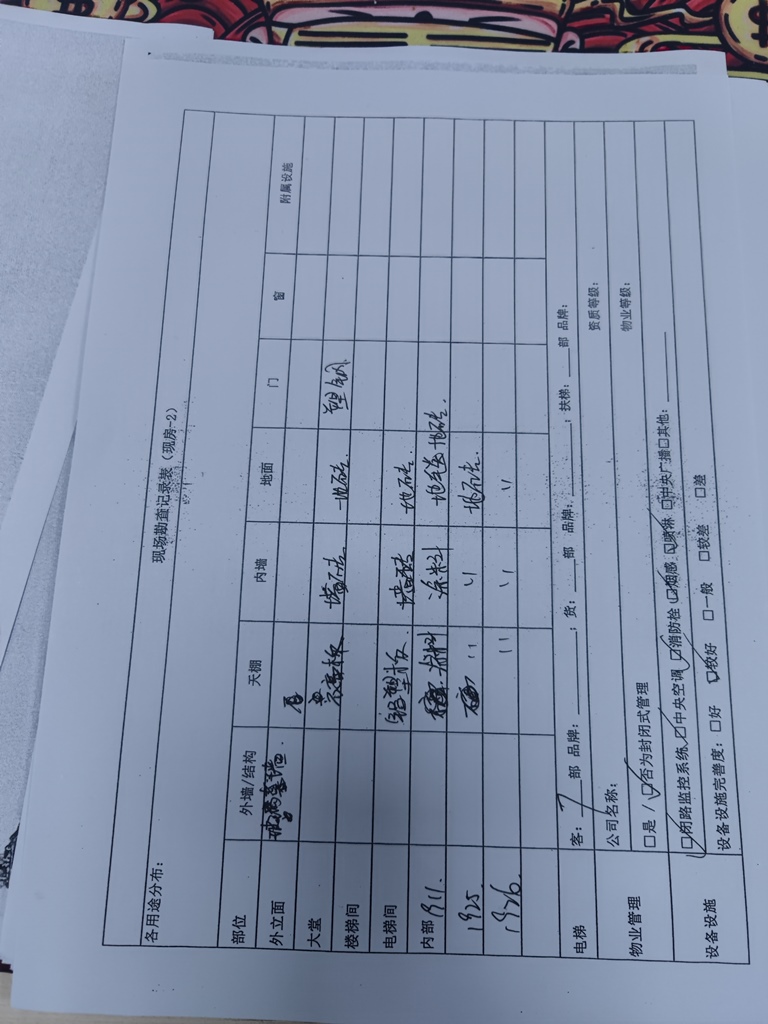 现场勘查记录表（现房-2）
各用途分布：
部位 外墙/结构 天棚 内墙 地面 门 窗 附属设施
外立面 玻璃幕墙.
大堂 墙砖 地砖. 塑钢.
楼梯间
电梯间 铝塑板. 墙砖 地砖.
内部 1911. 涂料 涂料 地毯 地砖.
1925. 〃 〃 地砖.
1926. 〃 〃 〃
电梯 客：7部 品牌：____；货：____部 品牌：____；扶梯：____部 品牌：
物业管理 公司名称： 资质等级：
□是 / ☑否为封闭式管理 物业等级：
设备设施 ☑闭路监控系统 ☑中央空调 ☑消防栓 ☑烟感 ☑喷淋 □中央广播 □其他：____
设备设施完善度：□好 ☑较好 □一般 □较差 □差